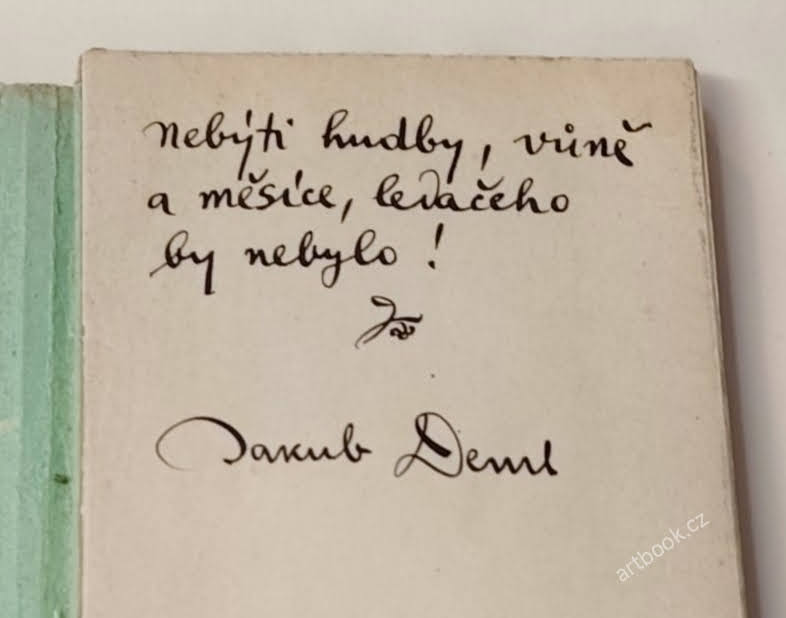 nebýti hudby, vůně
a měsíce, ledačeho
by nebylo!
Jakub Deml
artbook.cz